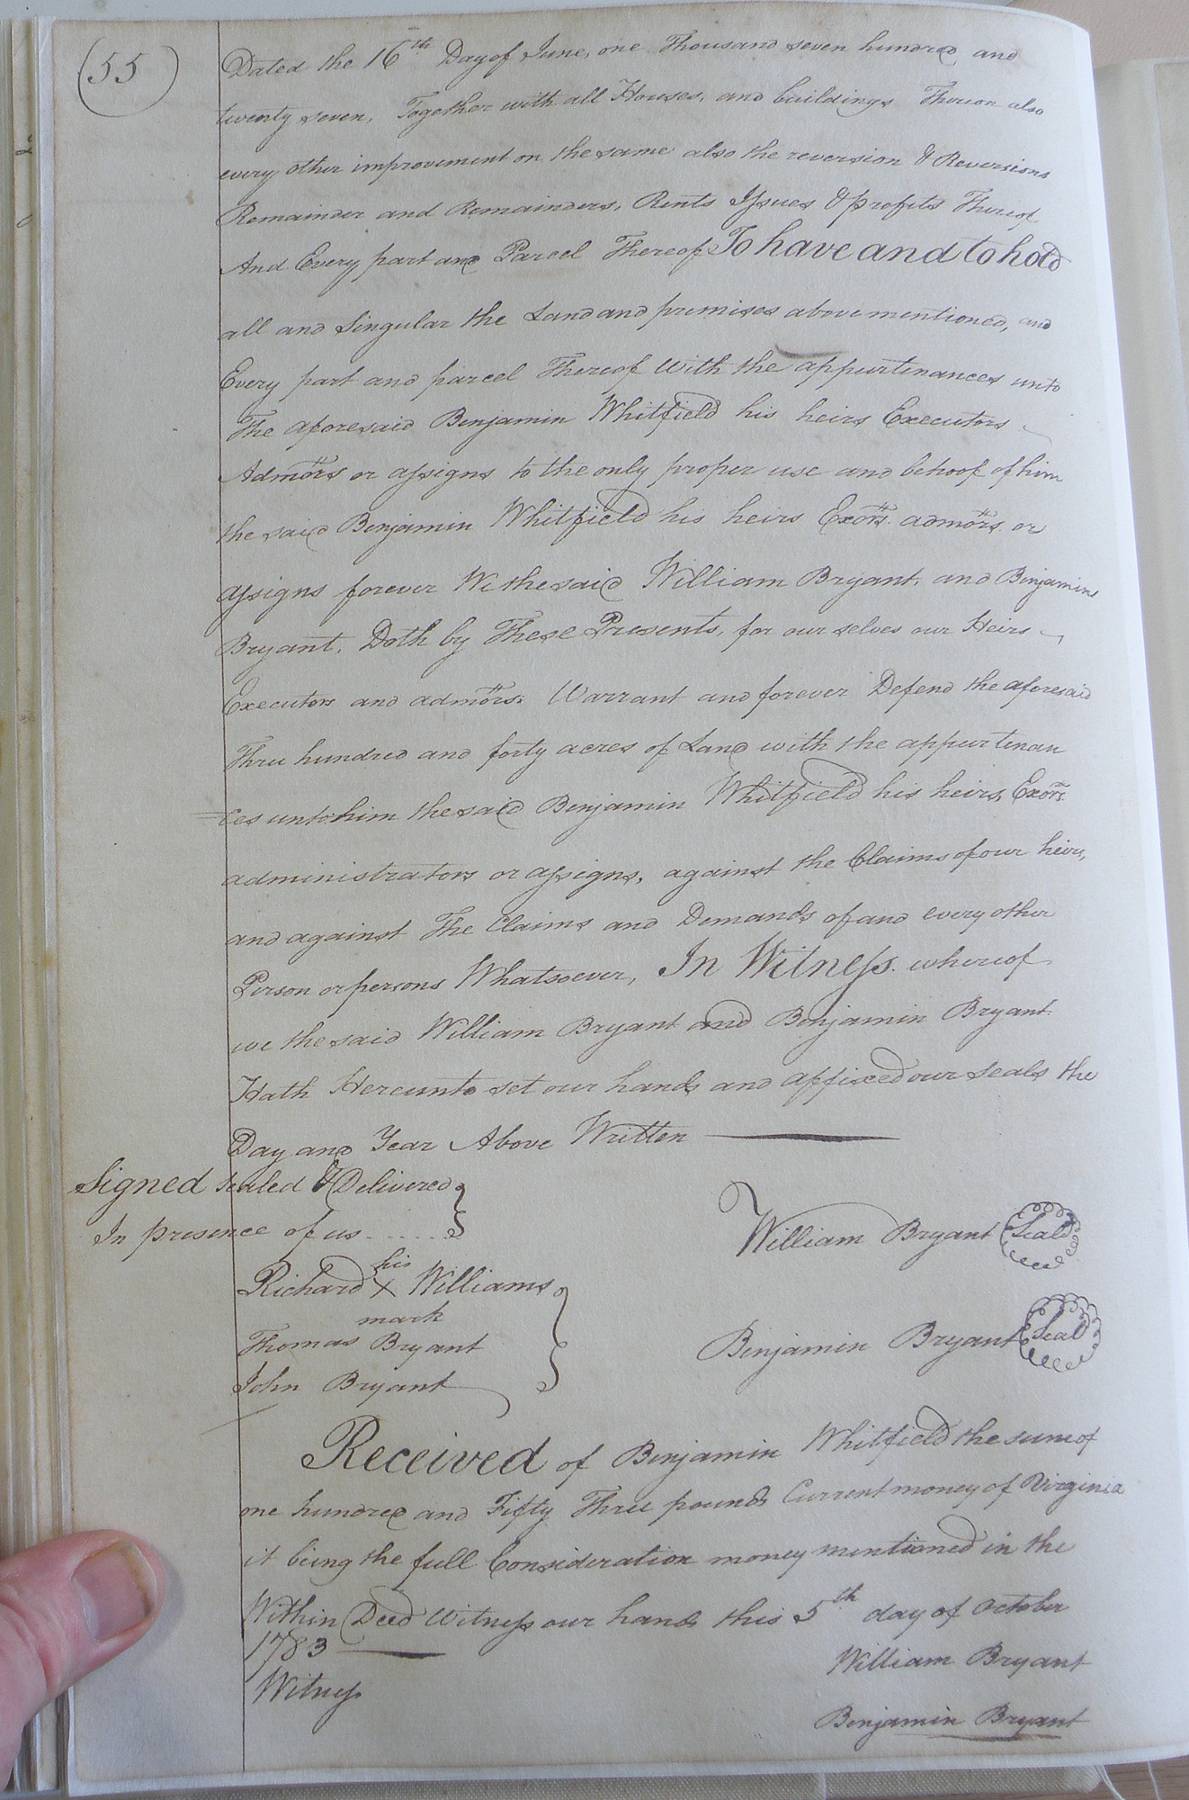 (55)
Dated the 16th Day of June, one Thousand seven hundred and
twenty seven, Together with all Houses, and buildings Thereon also
every other improvement on the same also the reversion & Reversions
Remainder and Remainders, Rents Issues & profits Thereof
And Every part and Parcel Thereof To have and to hold
all and Singular the Land and premises above mentioned, and
Every part and parcel Thereof With the appurtenances unto
The aforesaid Benjamin Whitfield his heirs Executors
Admors or assigns to the only proper use and behoof of him
the said Benjamin Whitfield his heirs Exors. admors. or
assigns forever We the said William Bryant, and Benjamin
Bryant, Doth by These Presents, for our selves our Heirs
Executors and admors. Warrant and forever Defend the aforesaid
Three hundred and forty acres of Land with the appurtenan
=ces unto him the said Benjamin Whitfield his heirs, Exors.
administrators or assigns, against the Claims of our heirs,
and against The Claims and Demands of and every other
Person or persons Whatsoever, In Witness. whereof
we the said William Bryant and Benjamin Bryant
Hath Hereunto set our hands and affixed our Seals the
Day and Year Above Written
Signed sealed & Delivered
In presence of us.....
William Bryant Seal
his
Richard X Williams
mark
Thomas Bryant
Benjamin Bryant Seal
John Bryant
Received of Benjamin Whitfield the sum of
one hundred and Fifty Three pounds Current money of Virginia
it being the full Consideration money mentioned in the
Within Deed Witness our hands this 5th day of October
1783
William Bryant
Witness
Benjamin Bryant